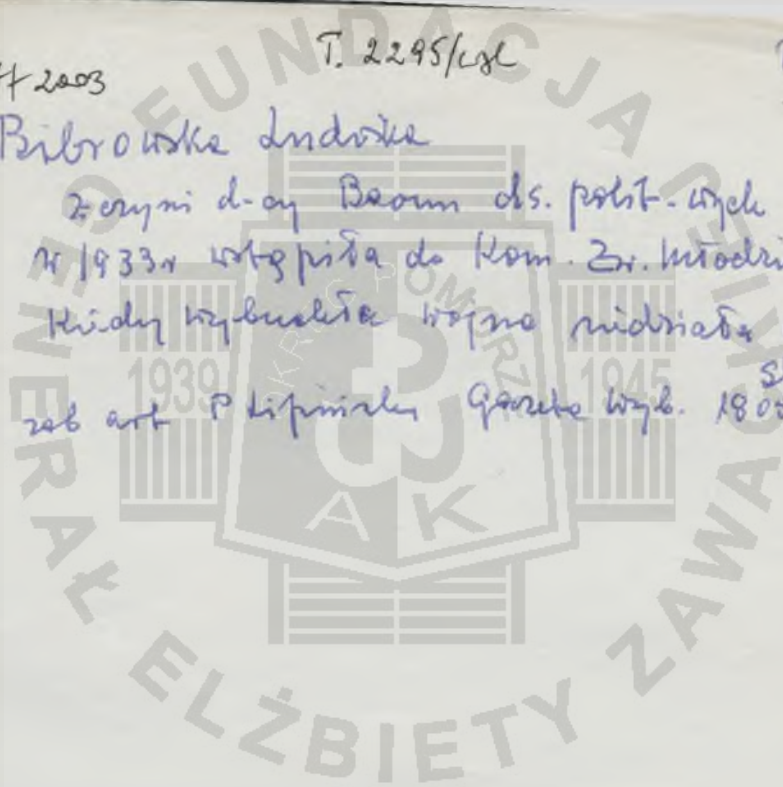 T. 2295/
2003
Bibrowska Ludwika
d-cy Baonu ds. polit-wych
w 1933r wstąpiła do Kom. Zw. Młodzi
Kiedy wybuchła wojna siedziała
zob art P Lipiński Gazeta Wyb. 18
FUNDACJA GENERAŁ ELŻBIETY ZAWAC
POMORZ
1939 1945
AK